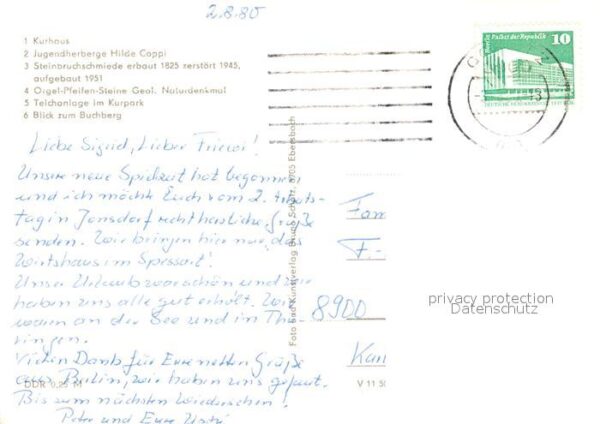 2.8.80
1 Kurhaus
2 Jugendherberge Hilde Coppi
3 Steinbruchschmiede erbaut 1825 zerstört 1945,
aufgebaut 1951
4 Orgel-Pfeifen-Steine Geol. Naturdenkmal
5 Teichanlage im Kurpark
6 Blick zum Buchberg
Berlin, Palast der Republik
10
Liebe Sigrid, Lieber Frieder!
Unsere neue Spielzeit hat begonnen
und ich möchte Euch vom 2. Arbeits-
tag in Jonsdorf recht herzliche Grüße
senden. Wir bringen hier nur "das
Wirtshaus im Spessart".
Unser Urlaub war schön und wir
haben uns alle gut erholt. Wir
warn an der See und im Thü-
ringen.
Vielen Dank für Eure netten Grüße
aus Berlin, wir haben uns gefreut.
Bis zum nächsten Wiedersehen!
Peter und Eure
Foto und Kunstverlag Bruno Scholz, 8705 Ebersbach
Fam
F.-
8900
Kam
DDR 0,25 M
V 11 50
privacy protection
Datenschutz